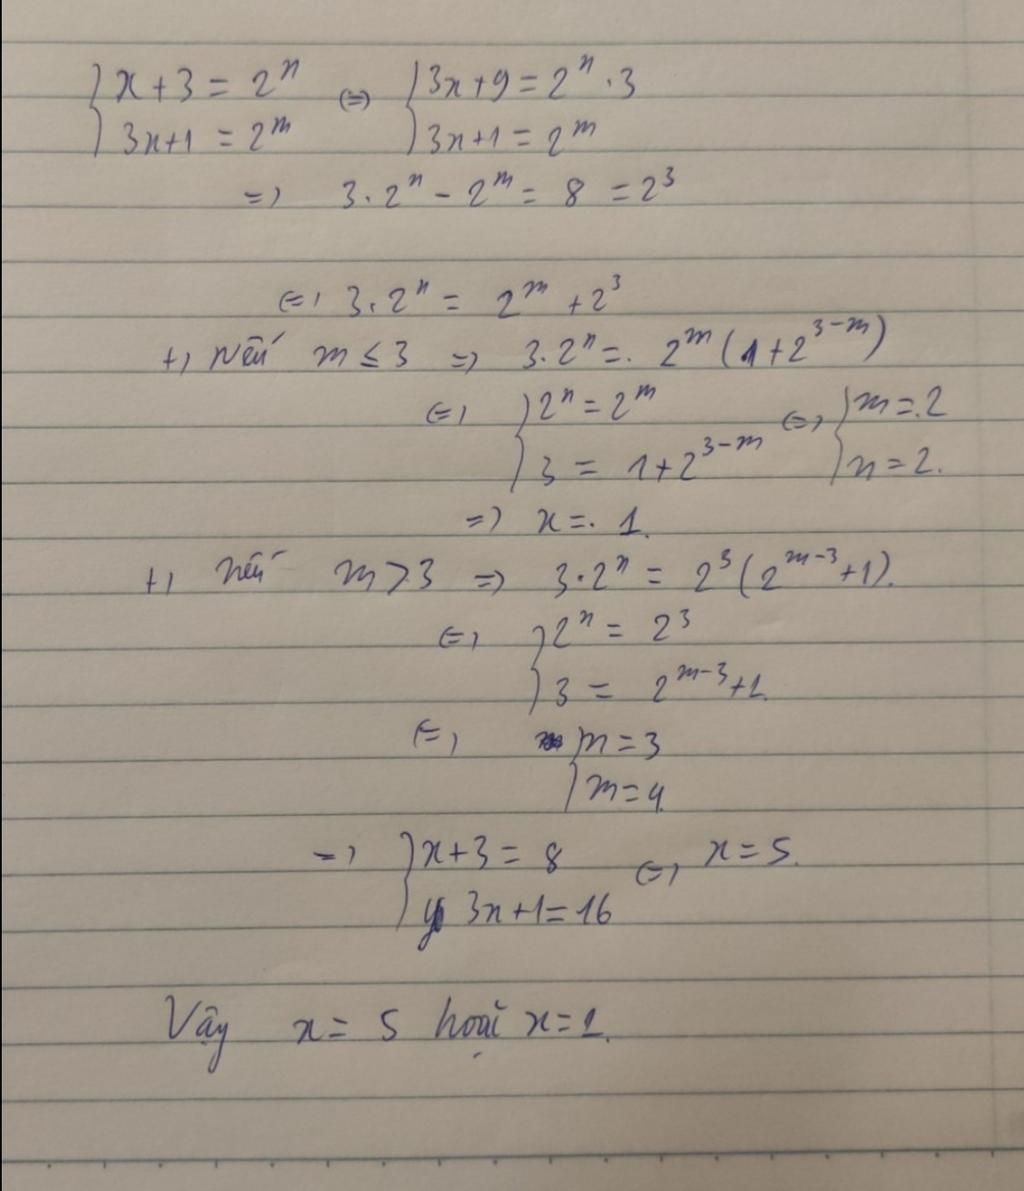 { x + 3 = 2^n (=) { 3x + 9 = 2^n . 3
{ 3x+1 = 2^m { 3x+1 = 2^m
=) 3. 2^n - 2^m = 8 = 2^3
(=) 3. 2^n = 2^m + 2^3
+) Nếu m ≤ 3 =) 3. 2^n =. 2^m (1+2^{3-m})
(=) { 2^n = 2^m (=) { m = 2
{ 3 = 1+2^{3-m} { n = 2.
=) x =. 1.
+) nếu m > 3 =) 3. 2^n = 2^3 (2^{m-3}+1).
(=) { 2^n = 2^3
{ 3 = 2^{m-3}+1.
(=) { n = 3
{ m = 4
=) { x+3 = 8 (=) x = 5.
{ 3x+1 = 16
Vậy x = 5 hoặc x = 1.